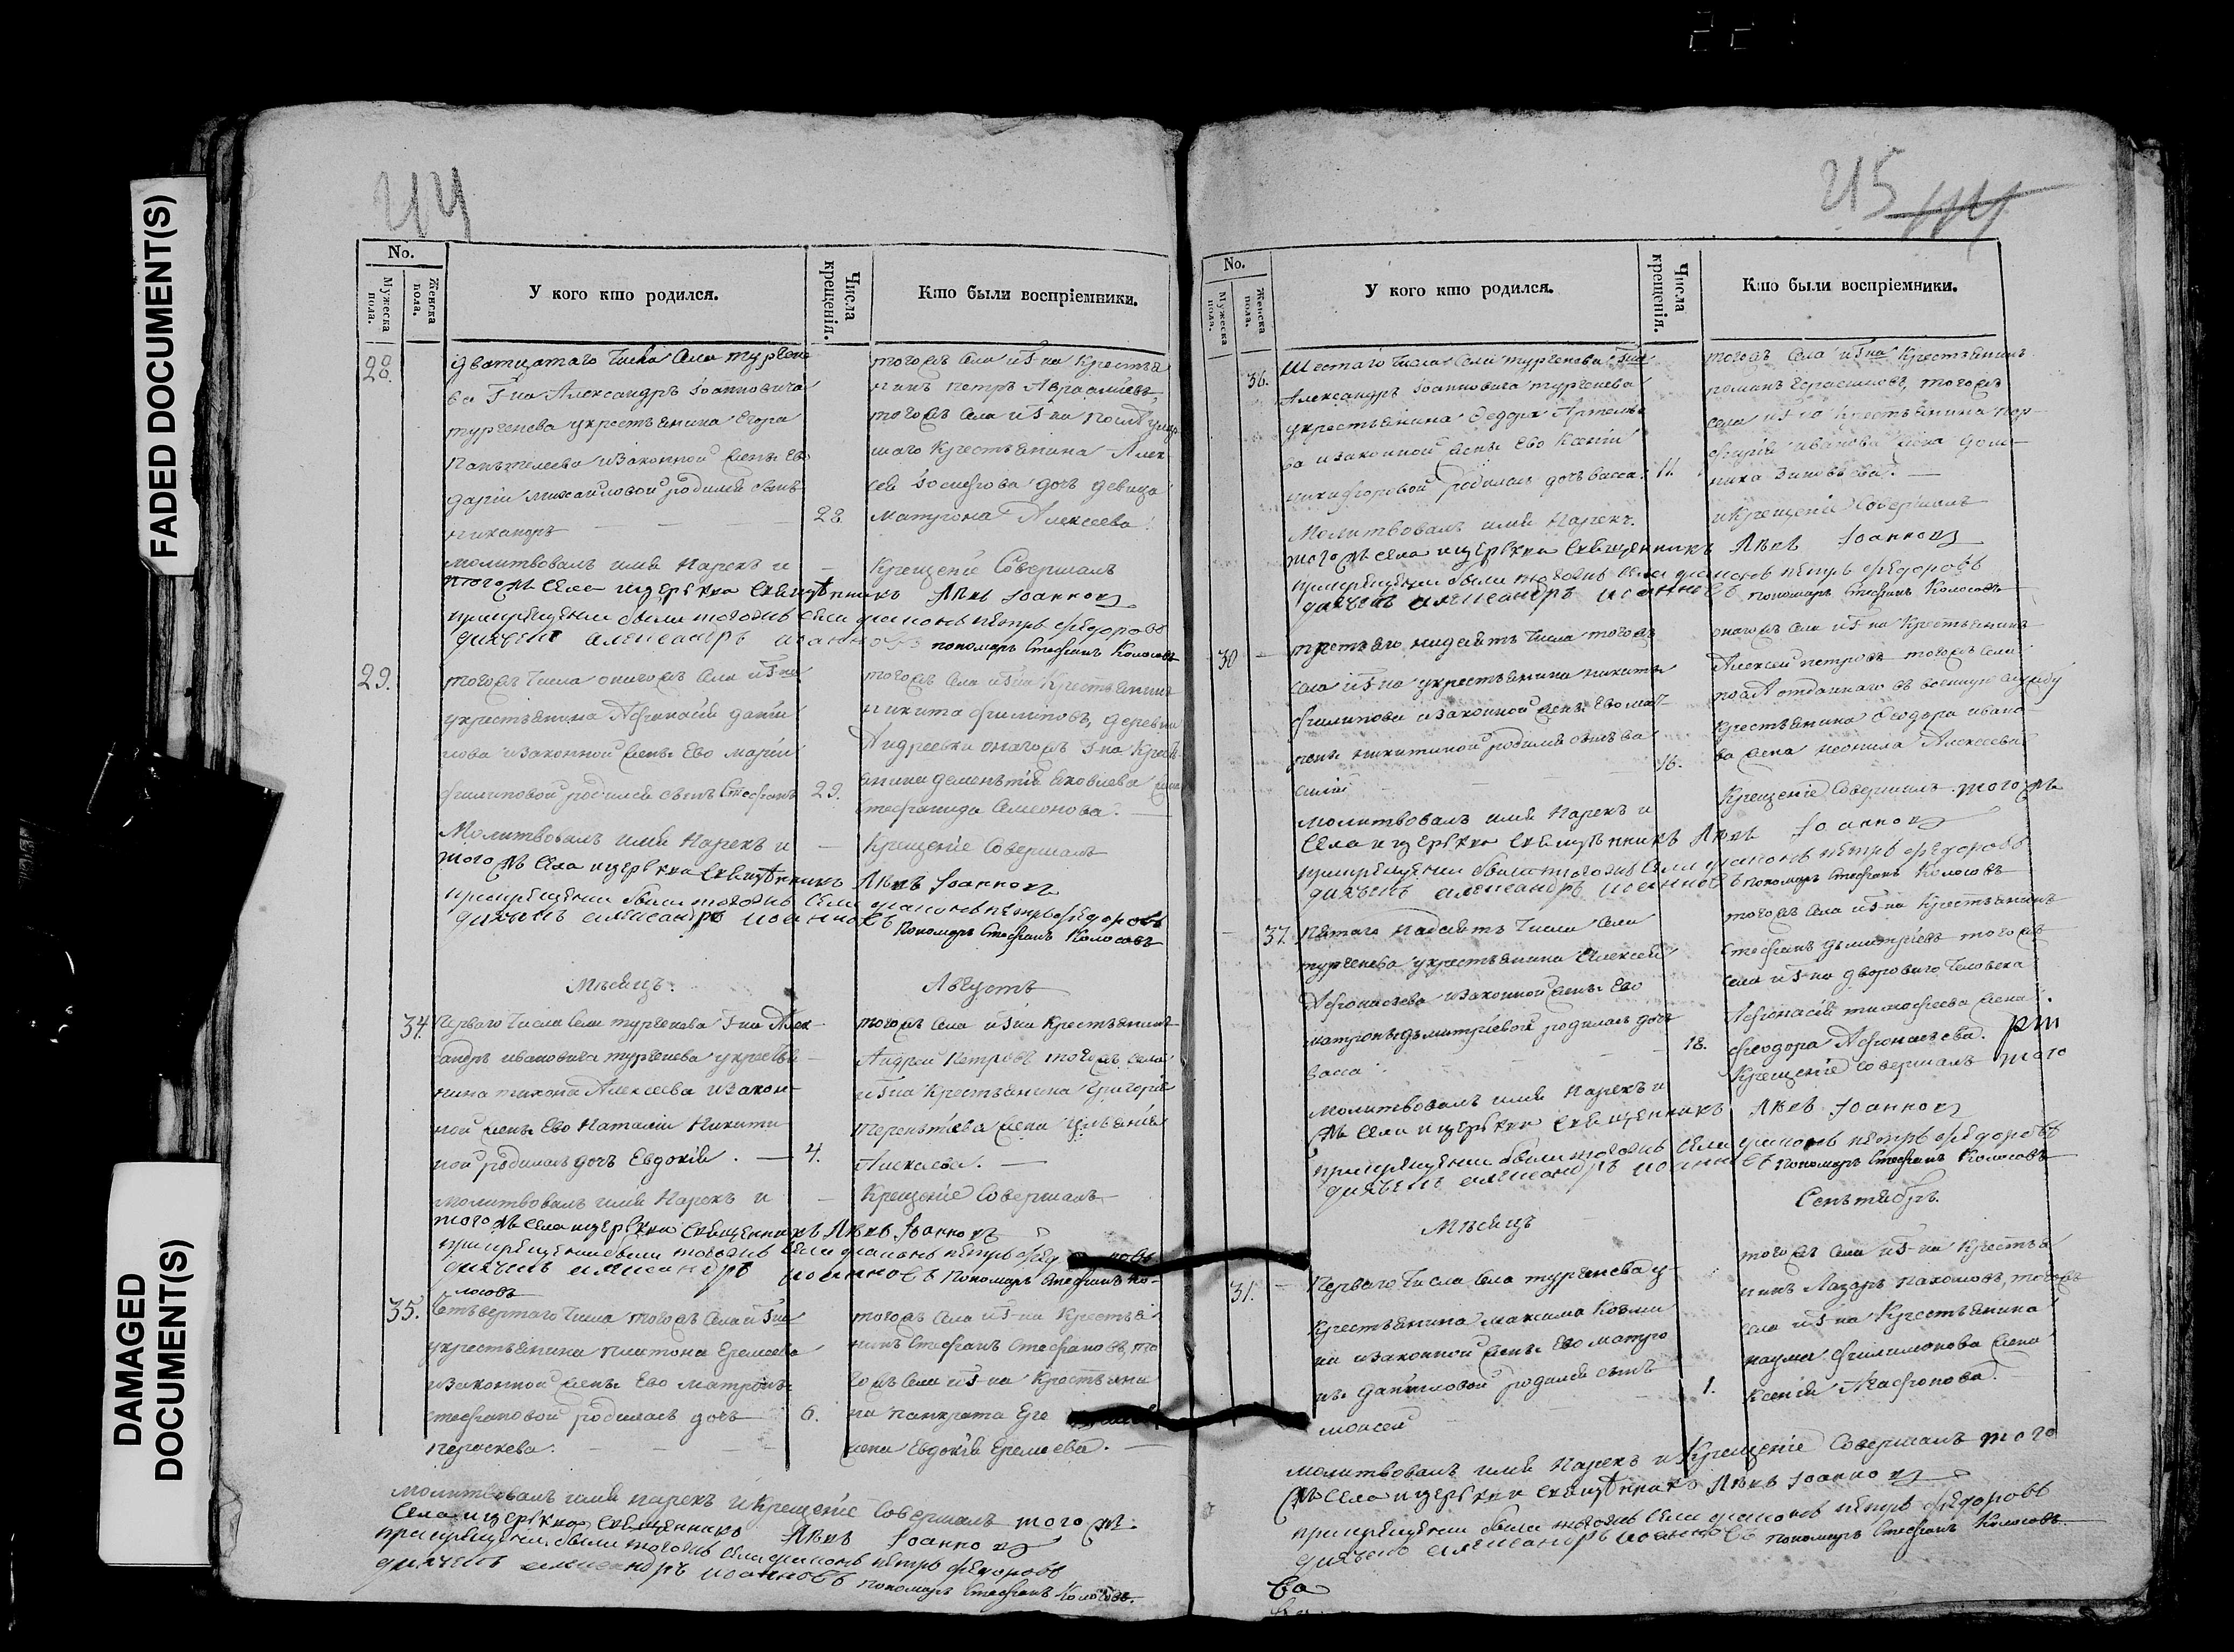 FADED DOCUMENT(S)
DAMAGED DOCUMENT(S)
No.
Мужеска пола.
Женска пола.
У кого кто родился.
Числа крещенія.
Кто были воспріемники.
28.
Дватцатаго числа села Тургене
ва Г-на Александръ Іоанновича
Тургенева укрестьянина Егора
Пантелеева изаконной жены Ево
Даріи Михайловой родился сынъ
Никаноръ
28.
тогожъ села и Г-на Крестья
нинъ Петръ
тогожъ села и Г-на после умер
шаго Крестьянина Алек
сея Іосифова дочь девица
Матрона Алексеева.
молитвовалъ имя Нарекъ и
Крещеніе Совершалъ
тогожъ села ицеркви священникъ Іоанновъ
прикрещени были тогожъ села діаконъ петръ федоровъ
дьячекъ александръ иоанновъ пономарь Стефанъ Колосовъ
29.
тогожъ числа оногожъ села и Г-на
укрестьянина Афанасія Дани
лова изаконной жены Ево Маріи
Филиповой родился сынъ Стефанъ
29.
тогожъ села и Г-на Крестьянинъ
Никита Филиповъ, деревни
Андреевки оногожъ Г-на Кресть
янина Дементія Яковлева жена
Стефанида Семенова.
Молитвовалъ имя Нарекъ и
Крещеніе Совершалъ
тогожъ села ицеркви священникъ Іоанновъ
прикрещени были тогожъ села діаконъ петръ федоровъ
дьячекъ александръ иоанновъ
пономарь Стефанъ Колосовъ
Месяцъ.
Августъ
34.
Перваго числа села Тургенева Г-на Алек-
сандръ Ивановича Тургенева укрестья
нина Тихона Алексеева изакон-
ной жены Ево Наталіи Никити
ной родилась дочь Евдокія.
4.
тогожъ села и Г-на Крестьянинъ
Андрей Петровъ тогожъ села
и Г-на Крестьянина Григорія
Терентіева жена
молитвовалъ имя Нарекъ и
Крещеніе Совершалъ
тогожъ села ицеркви священникъ Іоанновъ
прикрещени были тогожъ села діаконъ петръ
дьячекъ александръ иоанновъ пономарь Стефанъ Ко-
лосовъ
35.
Четвертаго числа тогожъ села и Г-на
укрестьянина Платона Еремеева
изаконной жены Ево Матроны
Стефановой родилась дочь
Параскева.
6.
тогожъ села и Г-на Крестья
нинъ Стефанъ Стефановъ, то
гожъ села и Г-на Крестьяни
на Панкрата
жена Евдокія Еремеева.
молитвовалъ имя нарекъ и Крещеніе Совершалъ тогожъ
села ицеркви священникъ Іоанновъ
прикрещени были тогожъ села діаконъ петръ федоровъ
дьячекъ александръ иоанновъ пономарь Стефанъ Колосовъ.
215
No.
Мужеска пола.
Женска пола.
У кого кто родился.
Числа крещенія.
Кто были воспріемники.
36.
Шестаго числа села Тургенева Г-на
Александръ Іоанновича Тургенева
укрестьянина Федора Артемье
ва изаконной жены Ево Ксеніи
Никифоровой родилась дочь Васса.
11.
тогожъ села и Г-на Крестьянинъ
Романъ Герасимовъ, тогожъ
села и Г-на Крестьянина Пор-
фирія Иванова жена Дом-
ника Зиновьева.
Молитвовалъ имя Нарекъ.
и Крещеніе Совершалъ
тогожъ села ицеркви священникъ Іоанновъ
прикрещени были тогожъ села діаконъ петръ федоровъ
дьячекъ александръ иоанновъ пономарь Стефанъ Колосовъ
30
третьяго надеять числа тогожъ
села и Г-на укрестьянина Никиты
Филипова изаконной жены Ево Мат-
рены Никитиной родился сынъ Ва
силій
16.
оногожъ села и Г-на Крестьянинъ
Алексей Петровъ тогожъ села
посла отданнаго въ военную службу
Крестьянина Феодора Ивано
ва жена Неонила Алексеева
молитвовалъ имя Нарекъ и
Крещеніе Совершалъ тогожъ
села ицеркви священникъ Іоанновъ
прикрещени были тогожъ села діаконъ петръ федоровъ
дьячекъ александръ иоанновъ пономарь Стефанъ Колосовъ
37.
Пятаго надеять числа села
Тургенева укрестьянина Алексея
Афонасьева изаконной жены Ево
Матроны Дьмитріевой родилась дочь
Васса.
18.
тогожъ села и Г-на Крестьянинъ
Стефанъ Дьмитріевъ тогожъ
села и Г-на двороваго человека
Афонасія Тимофеева жена
Феодора Афонасьева.
молитвовалъ имя Нарекъ и
Крещеніе Совершалъ того
жъ села ицеркви священникъ Іоанновъ
прикрещени были тогожъ села діаконъ петръ федоровъ
дьячекъ александръ иоанновъ пономарь Стефанъ Колосовъ
Месяцъ
Сентябрь.
31.
Перваго числа села Тургенева у-
крестьянина Максима Козми
на изаконной жены Ево Матро
ны Даниловой родился сынъ
Моисей
1.
тогожъ села и Г-на Крестья
нинъ Лазарь Пахомовъ, тогожъ
села и Г-на Крестьянина
Наума Филимонова жена
Ксенія Агафонова.
молитвовалъ имя Нарекъ и Крещеніе Совершалъ того
жъ села ицеркви священникъ Іоанновъ
прикрещени были тогожъ села діаконъ петръ федоровъ
дьячекъ александръ иоанновъ пономарь Стефанъ Колосовъ.